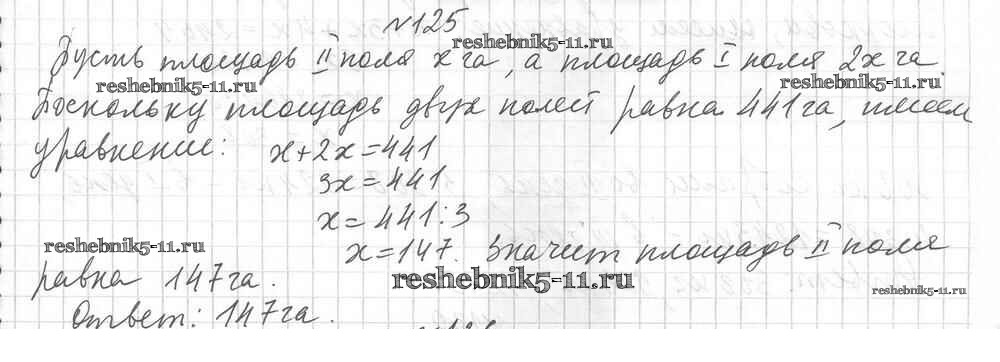 №125
reshebnik5-11.ru
Пусть площадь II поля x га, а площадь I поля 2x га.
reshebnik5-11.ru reshebnik5-11.ru
Поскольку площадь двух полей равна 441га, имеем
уравнение: x+2x=441
3x=441
x=441:3
reshebnik5-11.ru
x=147. Значит площадь II поля
равна 147га.
reshebnik5-11.ru
reshebnik5-11.ru
Ответ: 147га.